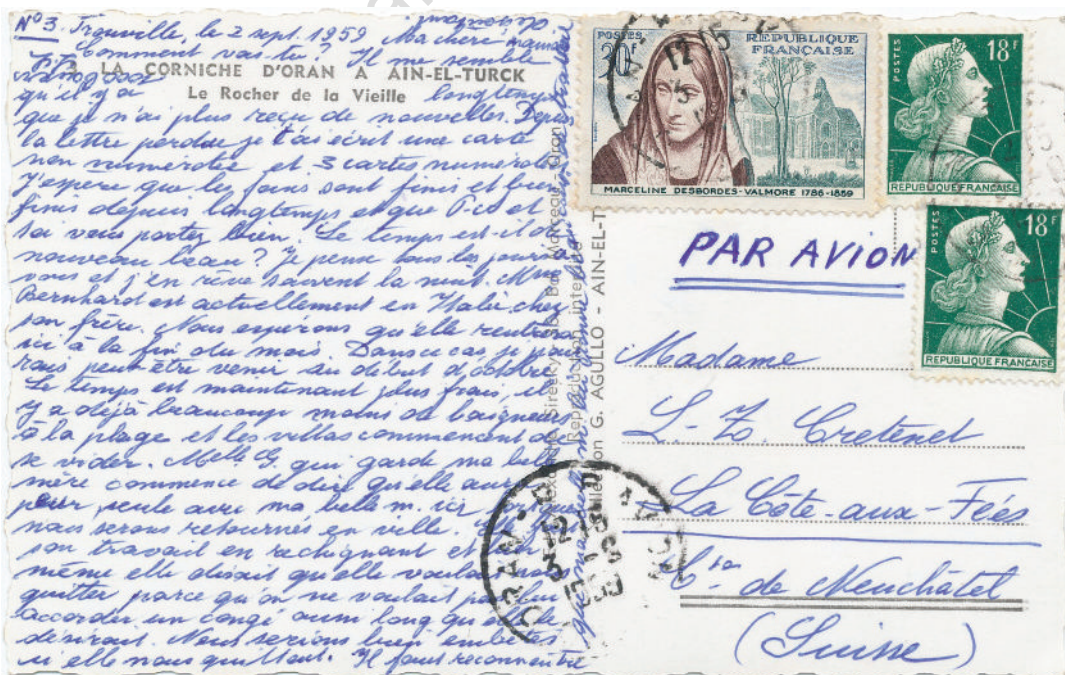 No 3. Trouville, le 2 sept. 1959 Ma chère maman
Comment vas-tu? Il me semble
3 LA CORNICHE D'ORAN A AIN-EL-TURCK
Le Rocher de la Vieille
qu'il y a longtemps
que je n'ai plus reçu de nouvelles. Depuis
la lettre perdue je t'ai écrit une carte
non numérotée et 3 cartes numérotées
J'espère que les foins sont finis et bien
finis depuis longtemps et que et
toi vous portez bien. Le temps est-il de
nouveau beau? Je pense tous les jours à
vous et j'en rêve souvent la nuit. Mme
Bernhard est actuellement en Italie chez
son frère. Nous espérons qu'elle rentrera
ici à la fin du mois. Dans ce cas je pour
rais peut-être venir au début d'octobre
Le temps est maintenant plus frais, il
y a déjà beaucoup moins de baigneurs
à la plage et les villas commencent de
se vider. Melle G. qui garde ma belle
mère commence de dire qu'elle aura
peur, seule avec ma belle m. ici
nous serons retournés en ville.
son travail en rechignant et
même elle disait qu'elle voulait nous
quitter parce qu'on ne voulait pas lui
accorder un congé aussi long qu'elle le
désirait. Nous serions bien embêtés
si elle nous quittait. Il faut reconnaître
POSTES
30F
REPUBLIQUE
FRANÇAISE
MARCELINE DESBORDES-VALMORE 1786-1859
POSTES
18F
REPUBLIQUE FRANCAISE
POSTES
18F
REPUBLIQUE FRANÇAISE
PAR AVION
Madame
L.-Z. Cretenet
La Côte-aux-Fées
Cton de Neuchâtel
(Suisse)
G. AGULLO - AIN-EL-T
ORAN
12-15
3-9
1959